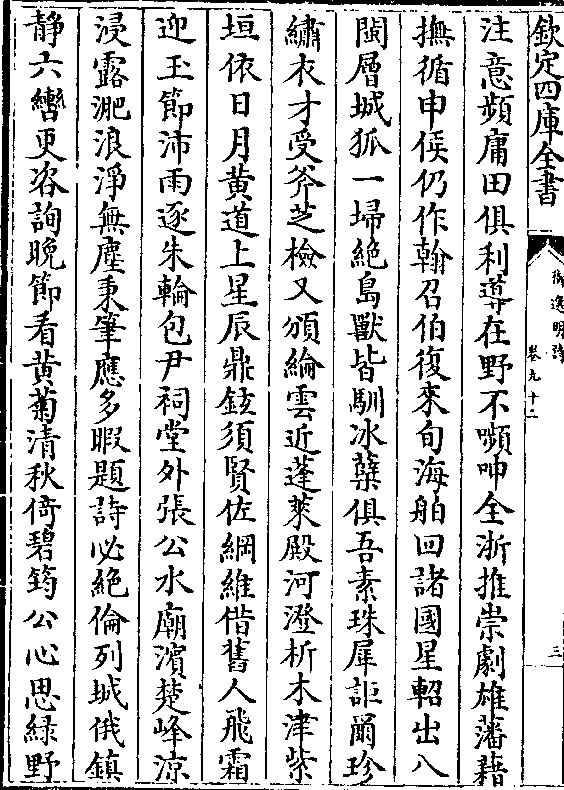 欽定四庫全書
御選明詩
卷九十二
三
注意頻庸田俱利導在野不嚬呻全浙推崇劇雄藩藉
撫循申侯仍作翰召伯復來旬海舶回諸國星軺出八
閩層城狐一埽絶島獸皆馴冰蘗俱吾素珠犀詎爾珍
繡衣才受斧芝檢又頒綸雲近蓬萊殿河澄析木津紫
垣依日月黄道上星辰鼎鉉須賢佐綱維借舊人飛霜
迎玉節沛雨逐朱輪包尹祠堂外張公水廟濱楚峰涼
浸露淝浪淨無塵秉筆應多暇題詩必絶倫列城俄鎮
静六轡更咨詢晩節看黄菊清秋倚碧筠公心思緑野